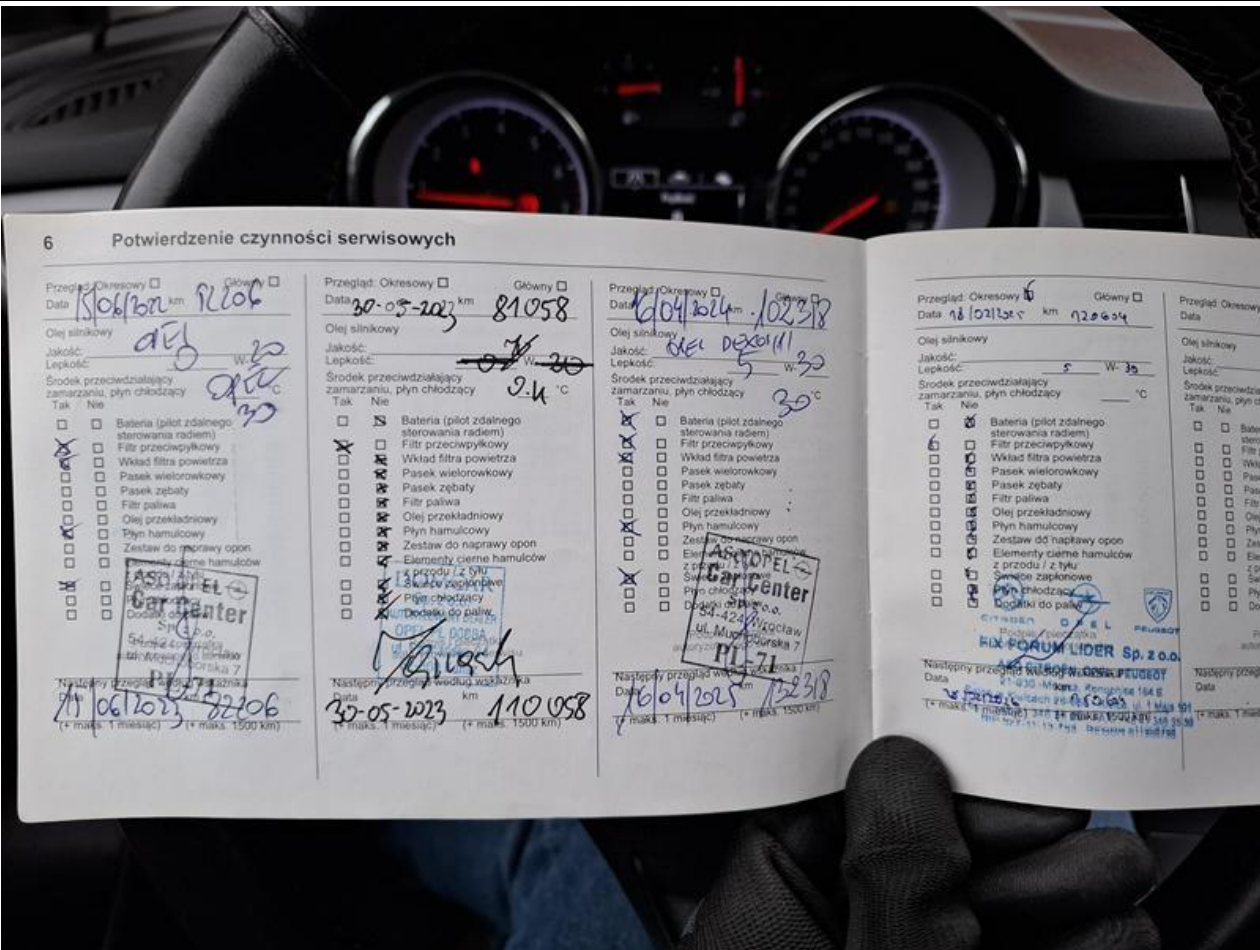 6 Potwierdzenie czynności serwisowych
Przegląd: Okresowy Główny
Data 15/06/2022 km 52206
Olej silnikowy
Jakość: OPEL
Lepkość: 0 W- 20
Środek przeciwdziałający
zamarzaniu, płyn chłodzący OPEL °C
30
Tak Nie
Bateria (pilot zdalnego
sterowania radiem)
Filtr przeciwpyłkowy
Wkład filtra powietrza
Pasek wielorowkowy
Pasek zębaty
Filtr paliwa
Olej przekładniowy
Płyn hamulcowy
Zestaw do naprawy opon
Elementy cierne hamulców
ASO OPEL
Car Center
Sp. z o.o.
54-424
ul. Muchoborska 7
Następny przegląd według wskaźnika
Data km
15/06/2023 82206
(+ maks. 1 miesiąc) (+ maks. 1500 km)
Przegląd: Okresowy Główny
Data 30-05-2023 km 81058
Olej silnikowy
Jakość:
Lepkość: W- 20
Środek przeciwdziałający
zamarzaniu, płyn chłodzący °C
Tak Nie
Bateria (pilot zdalnego
sterowania radiem)
Filtr przeciwpyłkowy
Wkład filtra powietrza
Pasek wielorowkowy
Pasek zębaty
Filtr paliwa
Olej przekładniowy
Płyn hamulcowy
Zestaw do naprawy opon
Elementy cierne hamulców
z przodu / z tyłu
Świece zapłonowe
Płyn chłodzący
Dodatki do paliw
Następny przegląd według wskaźnika
Data km
30-05-2023 110058
(+ maks. 1 miesiąc) (+ maks. 1500 km)
Przegląd: Okresowy Główny
Data 16/04/2024 km 102318
Olej silnikowy
Jakość: OPEL DEXOS
Lepkość: 5 W- 30
Środek przeciwdziałający
zamarzaniu, płyn chłodzący 30 °C
Tak Nie
Bateria (pilot zdalnego
sterowania radiem)
Filtr przeciwpyłkowy
Wkład filtra powietrza
Pasek wielorowkowy
Pasek zębaty
Filtr paliwa
Olej przekładniowy
Płyn hamulcowy
Zestaw do naprawy opon
ASO OPEL
Car Center
Sp. z o.o.
54-424 Wrocław
ul. Muchoborska 7
PL-71
Następny przegląd według wskaźnika
Data km
16/04/2025 132318
(+ maks. 1 miesiąc) (+ maks. 1500 km)
Przegląd: Okresowy Główny
Data 18/02/2025 km 120604
Olej silnikowy
Jakość:
Lepkość: 5 W- 30
Środek przeciwdziałający
zamarzaniu, płyn chłodzący °C
Tak Nie
Bateria (pilot zdalnego
sterowania radiem)
Filtr przeciwpyłkowy
Wkład filtra powietrza
Pasek wielorowkowy
Pasek zębaty
Filtr paliwa
Olej przekładniowy
Płyn hamulcowy
Zestaw do naprawy opon
Elementy cierne hamulców
z przodu / z tyłu
Świece zapłonowe
Płyn chłodzący
Dodatki do paliw
CITROEN OPEL PEUGEOT
FIX FORUM LIDER Sp. z o.o.
Następny przegląd według wskaźnika
Data km
(+ maks. 1 miesiąc) (+ maks. 1500 km)
Przegląd: Okresowy
Data
Olej silnikowy
Jakość:
Lepkość:
Tak Nie